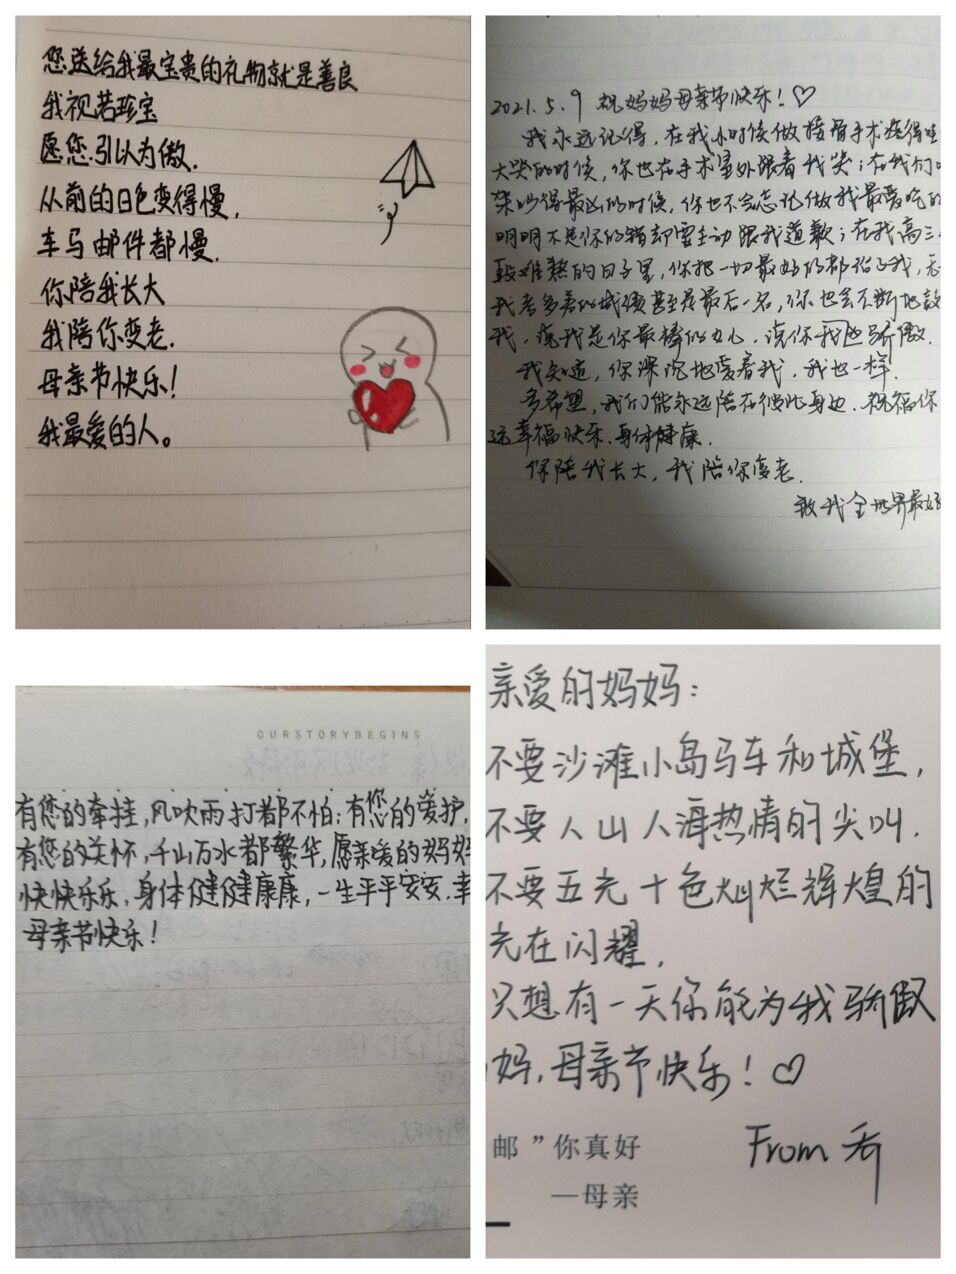 您送给我最宝贵的礼物就是善良
我视若珍宝
愿您引以为傲.
从前的日色变得慢,
车马邮件都慢.
你陪我长大
我陪你变老.
母亲节快乐!
我最爱的人。
2021.5.9 祝妈妈母亲节快乐!♡
我永远记得,在我小时候做接骨手术疼得哇
大哭的时候,你也在手术室外跟着我哭;在我们
架吵得最凶的时候,你也不会忘记做我最爱吃的
明明不是你的错却要主动跟我道歉;在我高三
段难熬的日子里,你把一切最好的都给了我,无
我考多差的成绩甚至是最后一名,你也会不断地鼓
我,说我是你最棒的女儿,说你我骄傲.
我知道,你深沉地爱着我,我也一样.
多希望,我们能永远陪在彼此身边.祝福你
远幸福快乐.身体健康.
你陪我长大,我陪你变老.
致我全世界最好
OURSTORYBEGINS
有您的牵挂,风吹雨打都不怕;有您的爱护,
有您的关怀,千山万水都繁华,愿亲爱的妈妈
快快乐乐,身体健健康康,一生平平安安.幸
母亲节快乐!
亲爱的妈妈:
不要沙滩小岛马车和城堡,
不要人山人海热情的尖叫.
不要五光十色灿烂辉煌的
光在闪耀,
只想有一天你能为我骄傲
妈,母亲节快乐!♡
邮”你真好
—母亲
From 乔